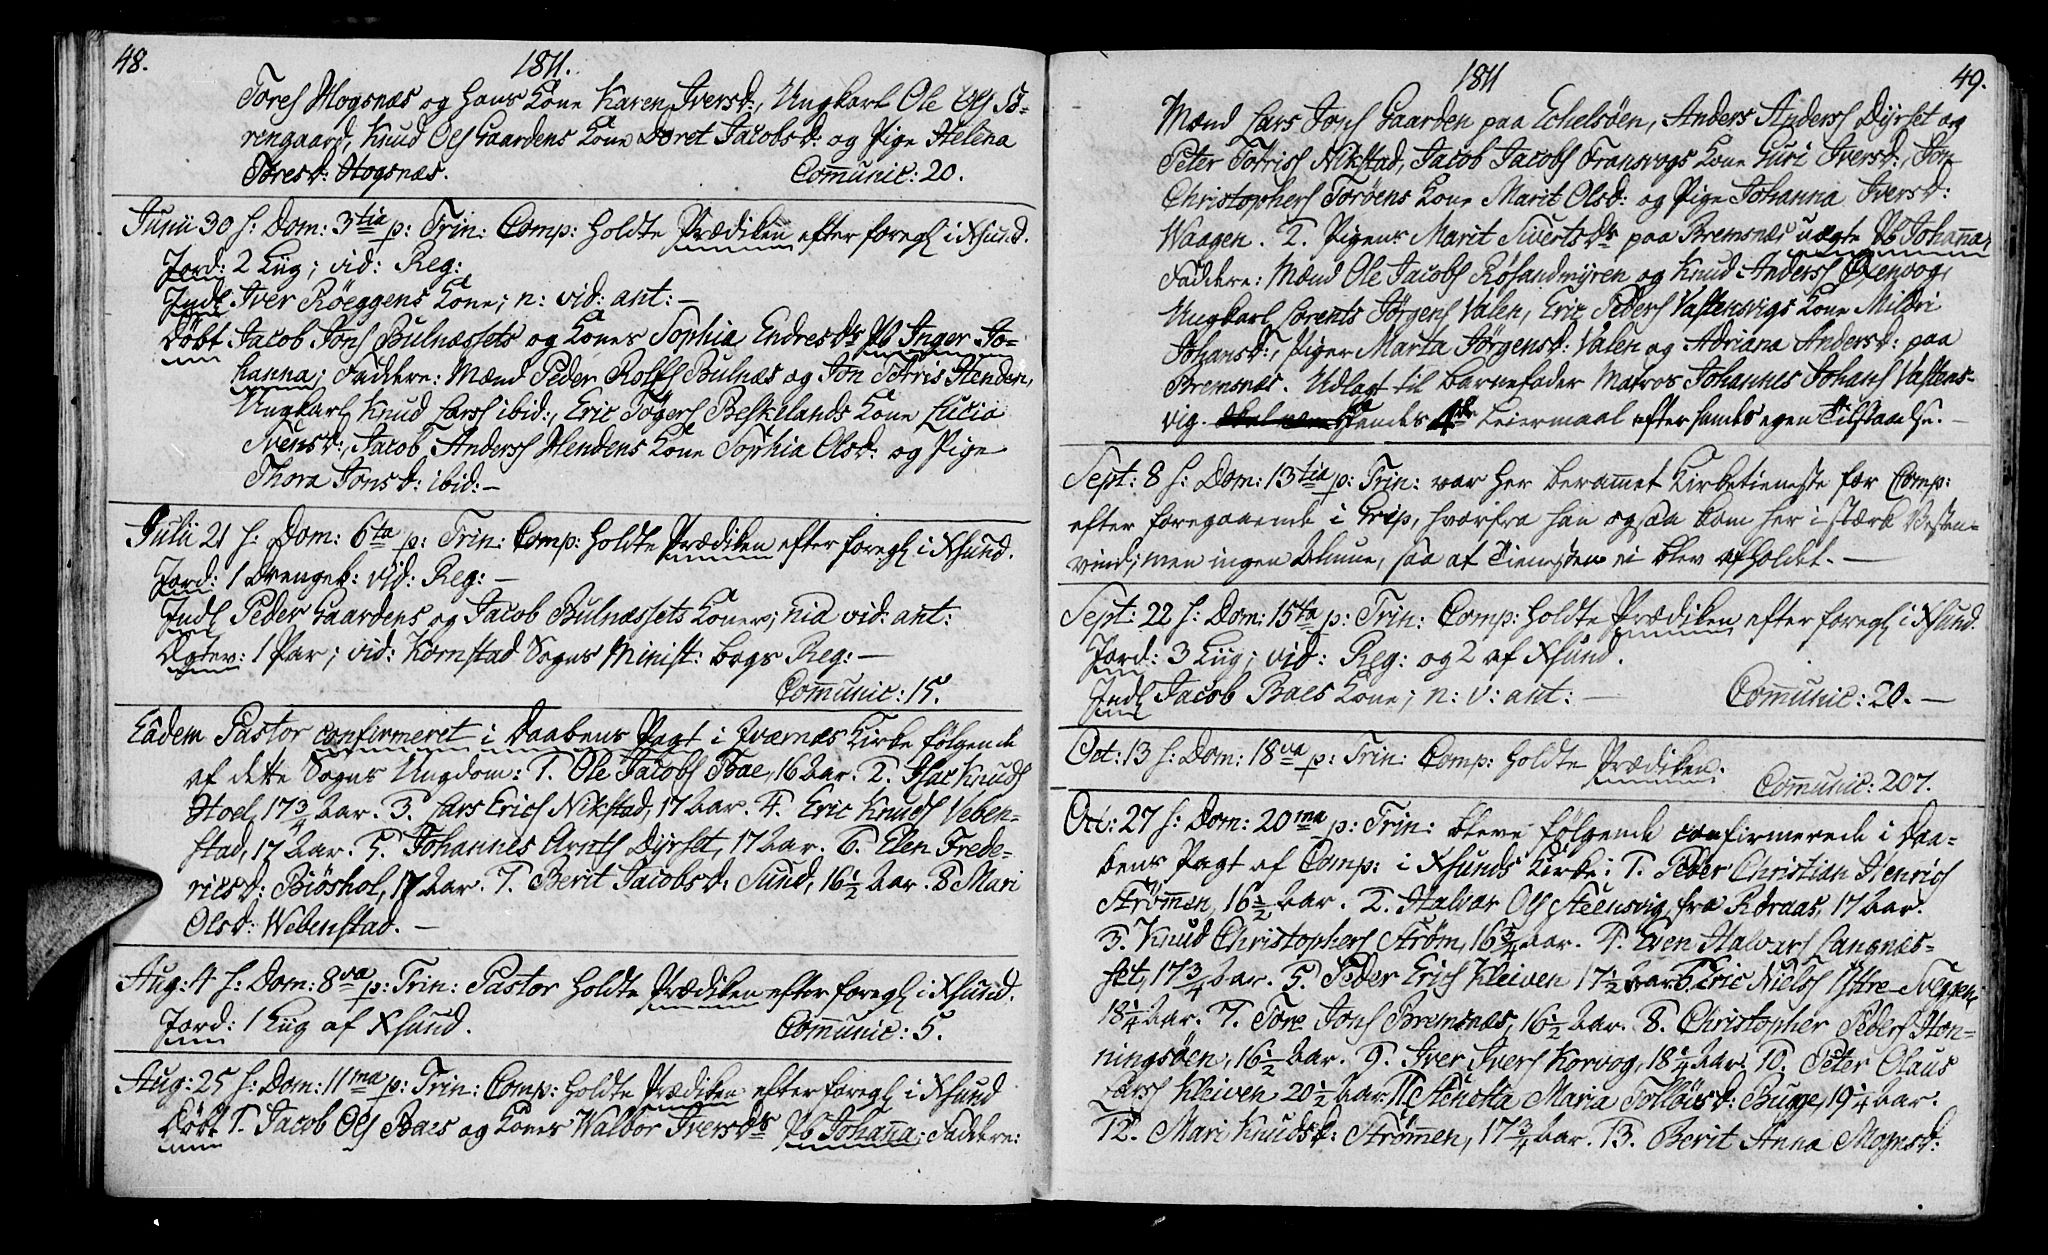 48.
1811.
Tores Hogsnæs og hans Kone Karen Iversd:, Ungkarl Ole Ols Bø-
rengaard, Knud Ols Gaardens Kone Doret Jacobsd: og Pige Helena
Toresd: Hogsnæs. Communic: 20.
Junii 30 h: Dom: 3tia p: Trin: Comp: holdte Prædiken efter foregl i Xsund.
Jord: 2 Liig; vid: Reg:
Indl Iver Røeggens Kone; n: vid: ant: —
Døbt Jacob Jons Bulnæssets og Kones Sophia Endresdr Pb Inger Jo-
hanna; Faddere: Mænd Peder Rolfs Bulnæs og Jon Torris Henden,
Ungkarl Knud Lars ibid:, Eric Tøgers Beskelands Kone Lucia
Svensd:, Jacob Anders Hendens Kone Sophia Olsd: og Pige
Thora Jonsd: ibid: —
Julii 21 h: Dom: 6ta p: Trin: Comp: holdte Prædiken efter foregl i Xsund.
Jord: 1 Drengeb: vid: Reg: —
Indl Peder Gaardens og Jacob Bulnæssets Koner; nia vid: ant:
Egtev: 1 Par; vid: Kornstad Sogns Minist: Bogs Reg: —
Communic: 15.
Eâdem Pastor confirmeret i Daabens Pagt i Qværnæs Kirke følgende
af dette Sogns Ungdom: 1. Ole Jacobs Bae, 16 Aar. 2. Isac Knuds
Hoel, 17 3/4 Aar. 3. Lars Erics Nikstad, 17 Aar. 4. Eric Knuds Veben-
stad, 17 Aar. 5. Johannes Arnts Dyrset, 17 Aar. 6. Elen Frede-
ricsd: Biöshol, 17 Aar. 7. Berit Jacobsd: Sund, 16 1/2 Aar. 8 Mari
Olsd: Webenstad. —
Aug: 4 h: Dom: 8va p: Trin: Pastor holdte Prædiken efter foregl i Xsund.
Jord: 1 Liig af Xsund. Communic: 5.
Aug: 25 h: Dom: 11ma p: Trin: Comp: holdte Prædiken efter foregl i Xsund
Døbt 1. Jacob Ols Baes og Kones Walbor Iversdr Pb Johanna; Faddere:
1811
49.
Mænd Lars Jons Gaarden paa Echelsøen, Anders Anders Dyrset og
Peter Torris Nikstad, Jacob Jacobs Transvogs Kone Guri Iversd:, Jon
Christophers Torøens Kone Marit Olsd: og Pige Johanna Iversd:
Waagen. 2. Pigens Marit Siverts dr paa Bremsnæs uægte Pb Johanna;
Faddere: Mænd Ole Jacobs Røsandmyren og Knud Anders Stenvog,
Ungkarl Lorents Jørgens Valen, Eric Peders Vastensvigs Kone Mildri
Johansd:, Piger Marta Jørgensd: Valen og Adriana Andersd: paa
Bremsnæs. Udlagt til Barnefader Matros Johannes Johans Vastens-
vig. Hendes 4de Leiermaal efter hendes egen Tilstaaelse. —
Sept: 8 h: Dom: 13tia p: Trin: var her beramet Kirketieneste for Comp:
efter foregaaende i Grip, hvorfra han ogsaa kom her i stærk Vesten-
vind; men ingen Almue, saa at Tienesten ei blev afholdet. —
Sept: 22 h: Dom: 15ta p: Trin: Comp: holdte Prædiken efter foregl i Xsund.
Jord: 3 Liig; vid: Reg: og 2 af Xsund.
Indl Jacob Baes Kone; n: v: ant: — Communic: 20. —
Oct: 13 h: Dom: 18va p: Trin: Comp: holdte Prædiken:
Communic: 207.
Oct: 27 h: Dom: 20ma p: Trin: bleve følgende confirmerede i Daa-
bens Pagt af Comp: i Xsunds Kirke: 1. Peder Christian Henrics
Strømmen, 16 1/2 Aar. 2. Halvar Ols Steensvig fra Røraas, 17 Aar.
3. Knud Christophers Strøm, 16 3/4 Aar. 4. Even Halvars Langnæs-
set, 17 3/4 Aar. 5. Peder Erics Kleiven 17 1/2 Aar. 6. Eric Niels Yttre-Sveggen,
18 1/4 Aar. 7. Tore Jons Bremsnæs, 16 1/2 Aar. 8. Christopher Peders Hon-
ningsøen, 16 1/2 Aar. 9. Iver Ivers Korvog, 18 1/4 Aar. 10. Peter Olaus
Lars Kleiven 20 1/2 Aar. 11. Stenetta Maria Tolløisd: Bugge, 19 1/4 Aar.
12. Mari Knudsd: Strømmen, 17 3/4 Aar. 13. Berit Anna Mognsd: